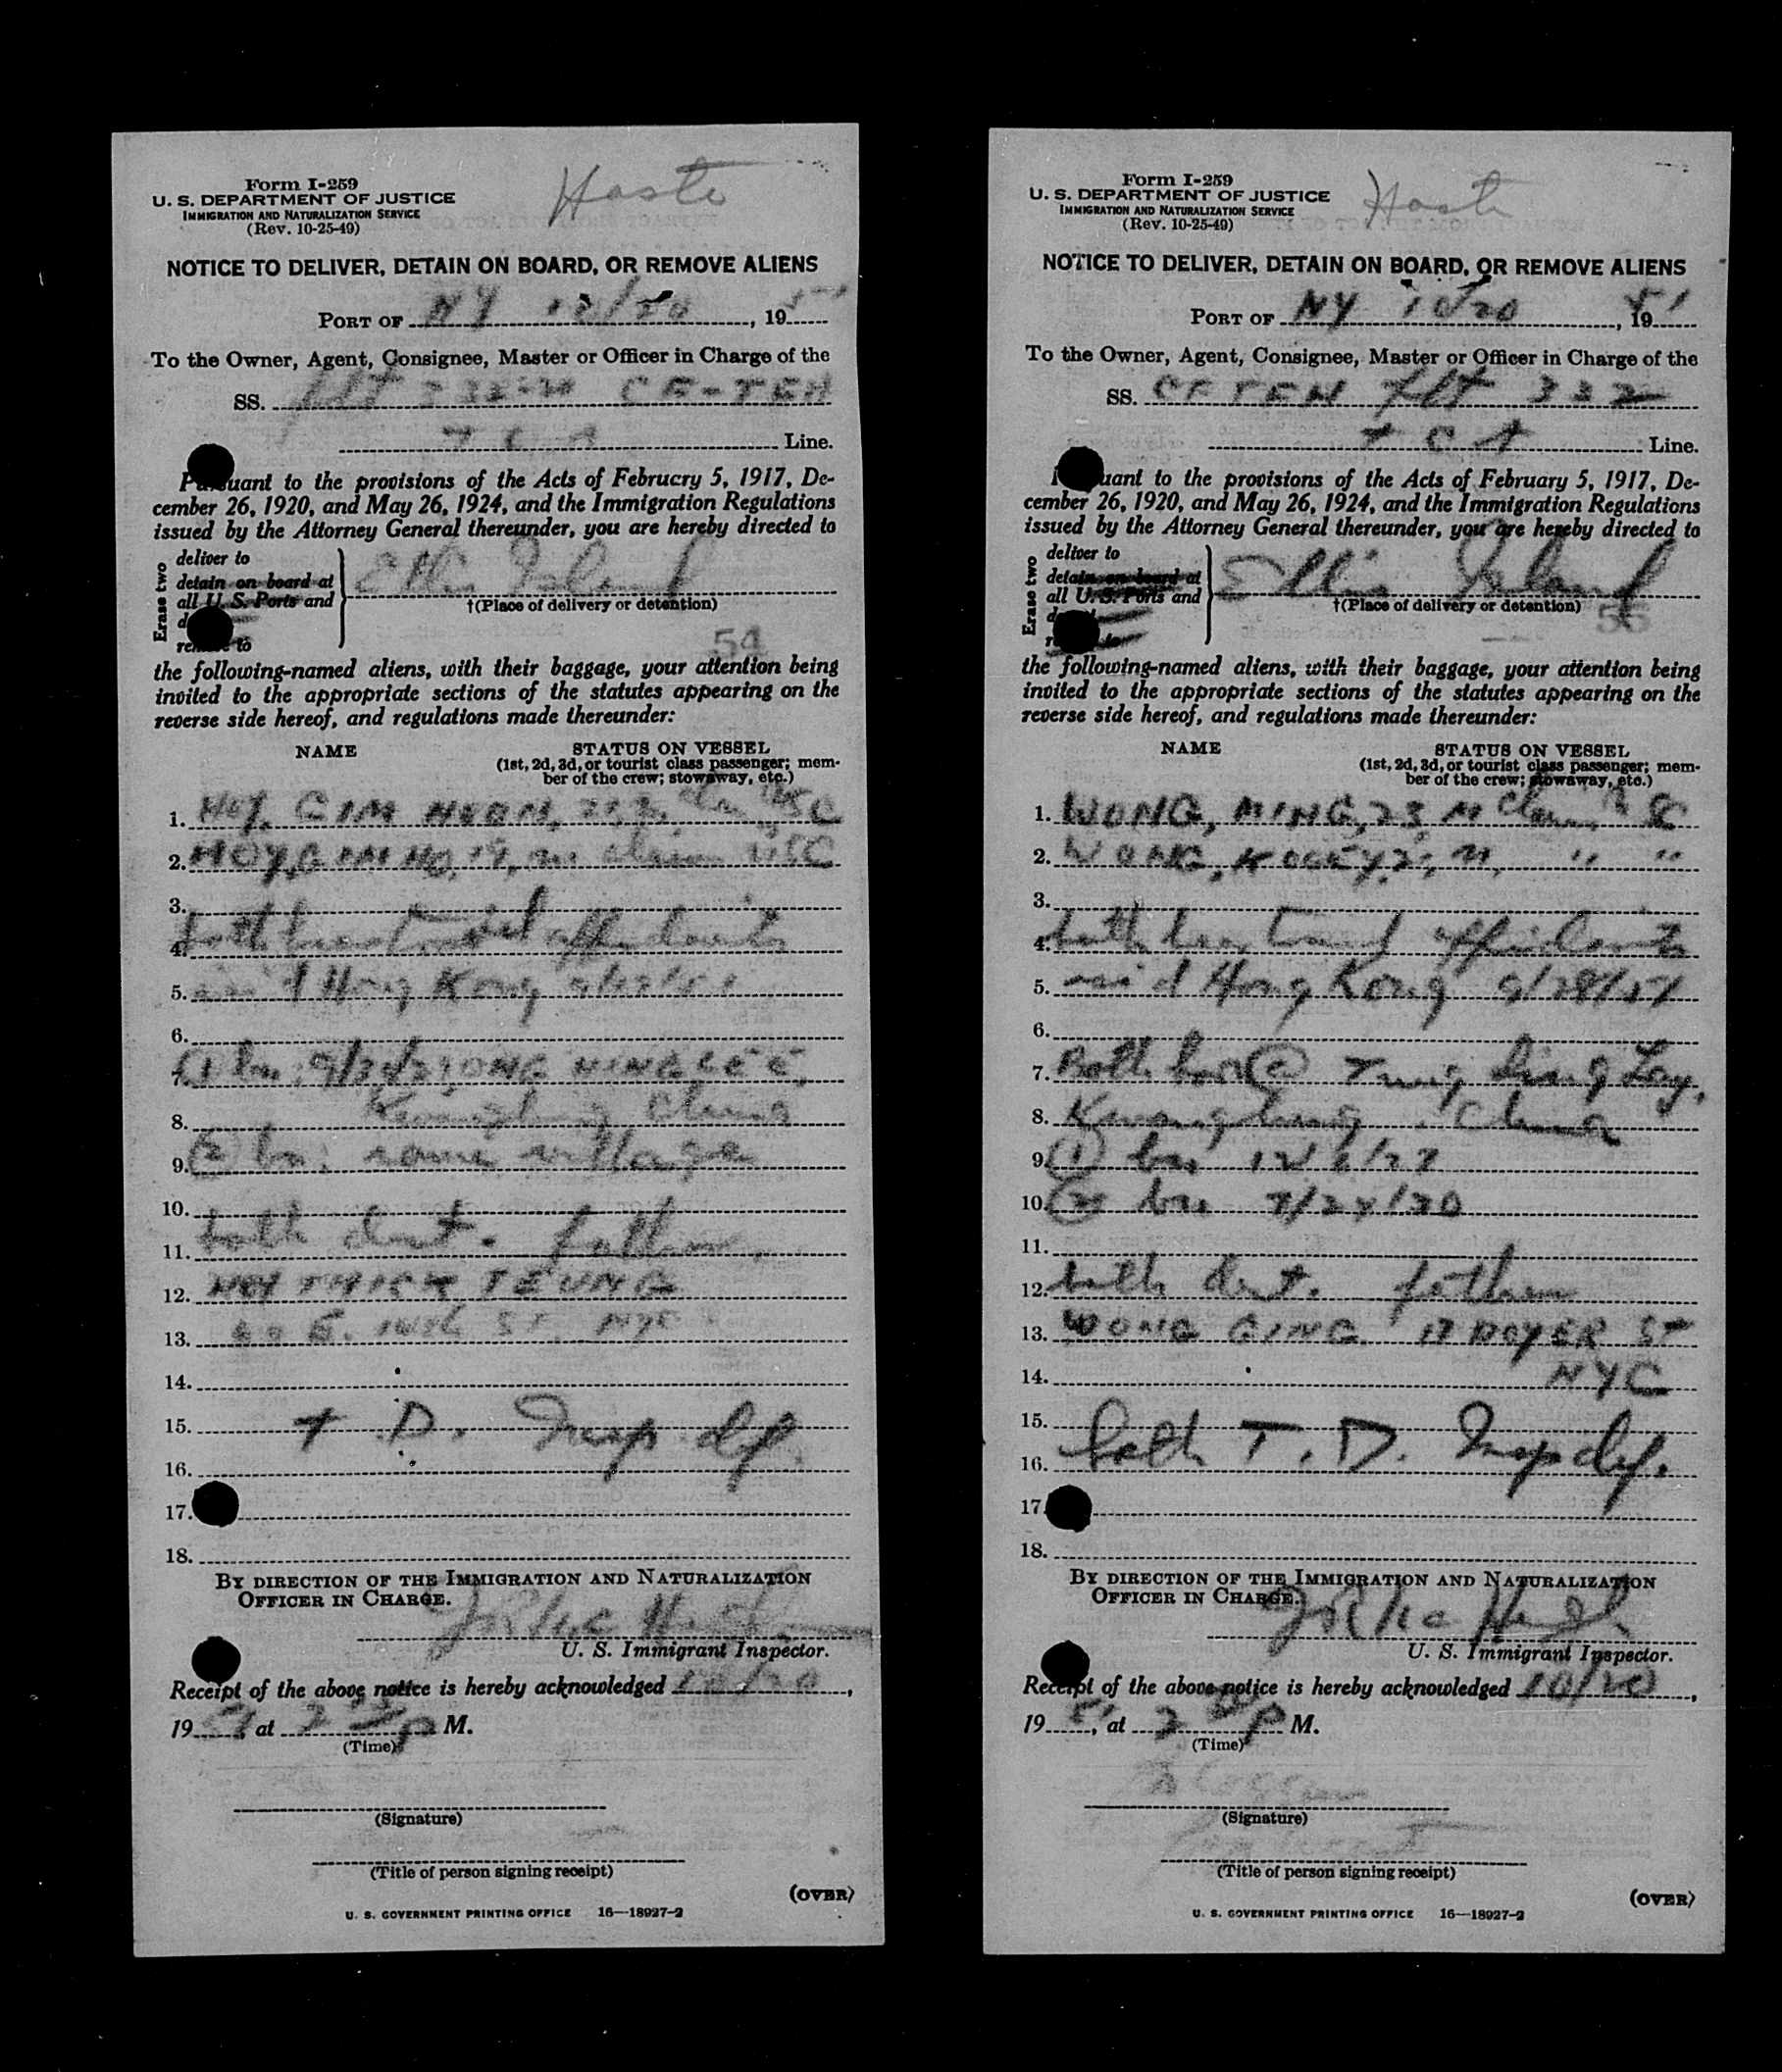 Form I-259
U. S. DEPARTMENT OF JUSTICE
IMMIGRATION AND NATURALIZATION SERVICE
(Rev. 10-25-49)
NOTICE TO DELIVER, DETAIN ON BOARD, OR REMOVE ALIENS
PORT OF NY /20, 1951
To the Owner, Agent, Consignee, Master or Officer in Charge of the
SS. flt CF-TEH
TCA Line.
Pursuant to the provisions of the Acts of February 5, 1917, De-
cember 26, 1920, and May 26, 1924, and the Immigration Regulations
issued by the Attorney General thereunder, you are hereby directed to
Erase two
deliver to
detain on board at
all U. S. Ports and
remove to
Ellis Island
†(Place of delivery or detention)
54
the following-named aliens, with their baggage, your attention being
invited to the appropriate sections of the statutes appearing on the
reverse side hereof, and regulations made thereunder:
NAME STATUS ON VESSEL
(1st, 2d, 3d, or tourist class passenger; mem-
ber of the crew; stowaway, etc.)
1. MOY, GIM USC
2. MOY, GIM HO, 19, m claim USC
3.
4. both have travel affidavits
5. Hong Kong
6.
7. (1) bn:
8. Kwangtung China
9. (2) bn: same village
10.
11. both dest. father
12. MOY
13. E. ST. NYC
14.
15. T. D. Insp
16.
17.
18.
BY DIRECTION OF THE IMMIGRATION AND NATURALIZATION
OFFICER IN CHARGE.
U. S. Immigrant Inspector.
Receipt of the above notice is hereby acknowledged 10/20,
1951 at 2 P M.
(Time)
(Signature)
(Title of person signing receipt)
(OVER)
U. S. GOVERNMENT PRINTING OFFICE 16—18927-2
Form I-259
U. S. DEPARTMENT OF JUSTICE
IMMIGRATION AND NATURALIZATION SERVICE
(Rev. 10-25-49)
NOTICE TO DELIVER, DETAIN ON BOARD, OR REMOVE ALIENS
PORT OF NY 10/20, 1951
To the Owner, Agent, Consignee, Master or Officer in Charge of the
SS. CF TEH flt 332
TCA Line.
Pursuant to the provisions of the Acts of February 5, 1917, De-
cember 26, 1920, and May 26, 1924, and the Immigration Regulations
issued by the Attorney General thereunder, you are hereby directed to
Erase two
deliver to
detain on board at
all U. S. Ports and
Ellis Island
†(Place of delivery or detention)
the following-named aliens, with their baggage, your attention being
invited to the appropriate sections of the statutes appearing on the
reverse side hereof, and regulations made thereunder:
NAME STATUS ON VESSEL
(1st, 2d, 3d, or tourist class passenger; mem-
ber of the crew; stowaway, etc.)
1. WONG, MING, 23, M claim
2. WONG, M, " "
3.
4. both have travel affidavits
5. iss'd Hong Kong 9/28/51
6.
7. Both born @
8. Kwangtung, China
9. (1) bn
10. (2) bn
11.
12. both dest. father
13. WONG GING DOYER ST
14. NYC
15. both T. D. Insp
16.
17.
18.
BY DIRECTION OF THE IMMIGRATION AND NATURALIZATION
OFFICER IN CHARGE.
U. S. Immigrant Inspector.
Receipt of the above notice is hereby acknowledged 10/20,
1951, at 2 P M.
(Time)
(Signature)
(Title of person signing receipt)
(OVER)
U. S. GOVERNMENT PRINTING OFFICE 16—18927-2